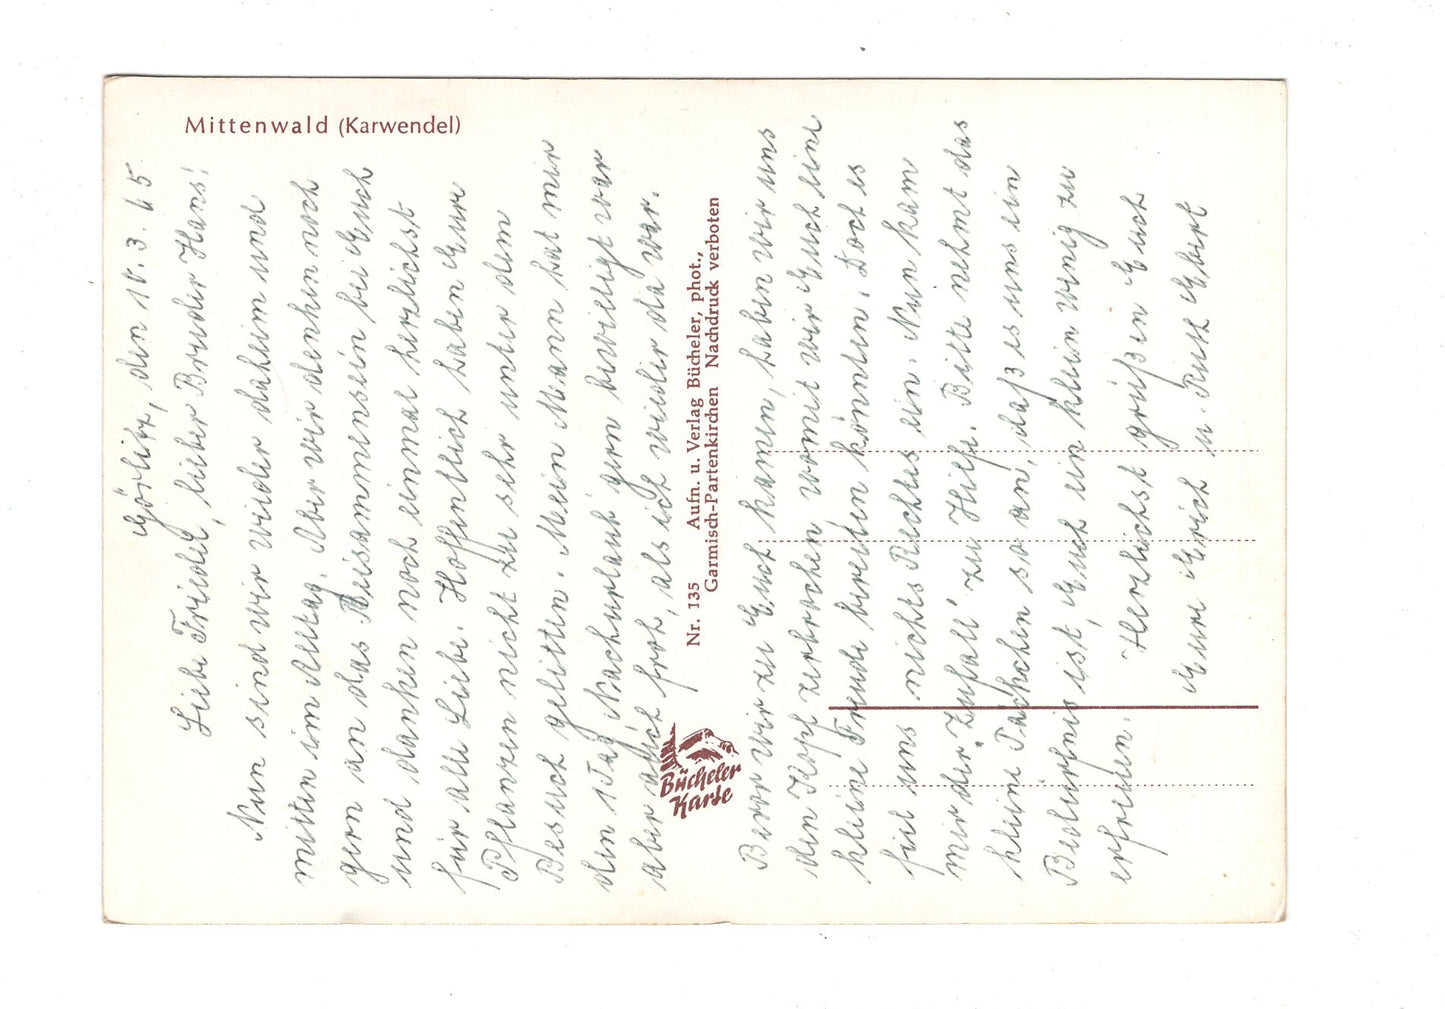 Mittenwald (Karwendel)
Görlitz, den 18. 3. 65
Liebe Friedel, lieber Bruder Hans!
Nun sind wir wieder daheim und
mitten im Alltag. Aber wir denken noch
gern an das Beisammensein bei Euch
und danken noch einmal herzlichst
für alle Liebe. Hoffentlich haben Eure
Pflanzen nicht zu sehr unter dem
Besuch gelitten. Mein Mann hat mir
den 1 Tag Nachurlaub gern bewilligt war
aber auch froh, als ich wieder da war.
Nr. 135 Aufn. u. Verlag Bücheler, phot.,
Garmisch-Partenkirchen Nachdruck verboten
Bücheler
Karte
Bevor wir zu Euch kamen, haben wir uns
den Kopf zerbrochen womit wir Euch eine
kleine Freude bereiten könnten. Doch es
fiel uns nichts Rechtes ein. Nun kam
mir der „Zufall" zu Hilfe. Bitte nehmt das
kleine Päckchen so an, daß es uns ein
Bedürfnis ist, Euch ein klein wenig zu
erfreuen.
Herzlichst grüßen Euch
Eure Erich u. Ruth Ebert